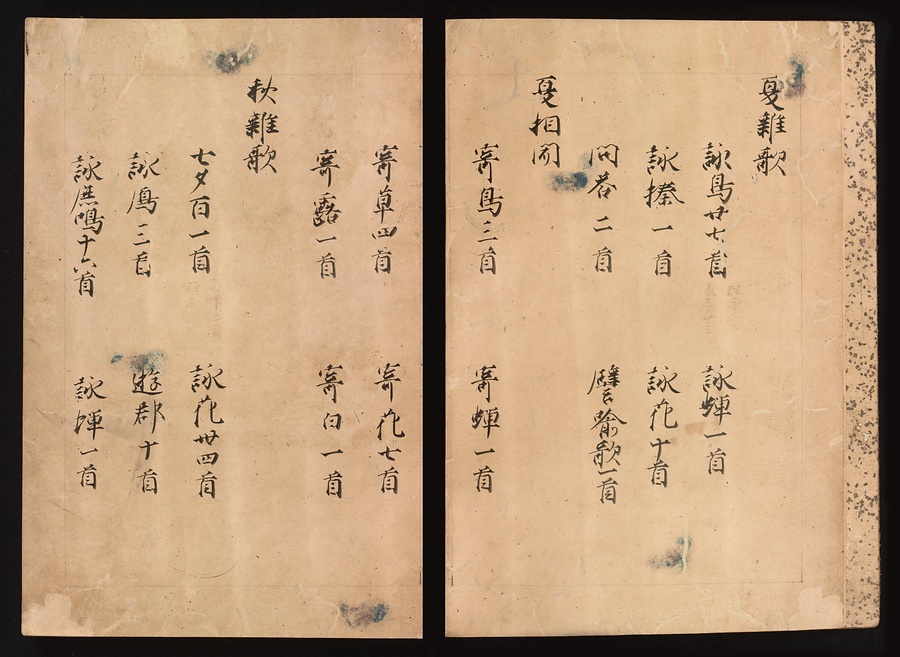 夏雜歌
詠鳥廿七首　詠蟬一首
詠榛一首　詠花十首
問荅二首　譬喻歌一首
夏相聞
寄鳥三首　寄蟬一首
寄草四首　寄花七首
寄露一首　寄日一首
秋雜歌
七夕百一首　詠花卅四首
詠鴈三首　遊郡十首
詠鹿鳴十六首　詠蟬一首